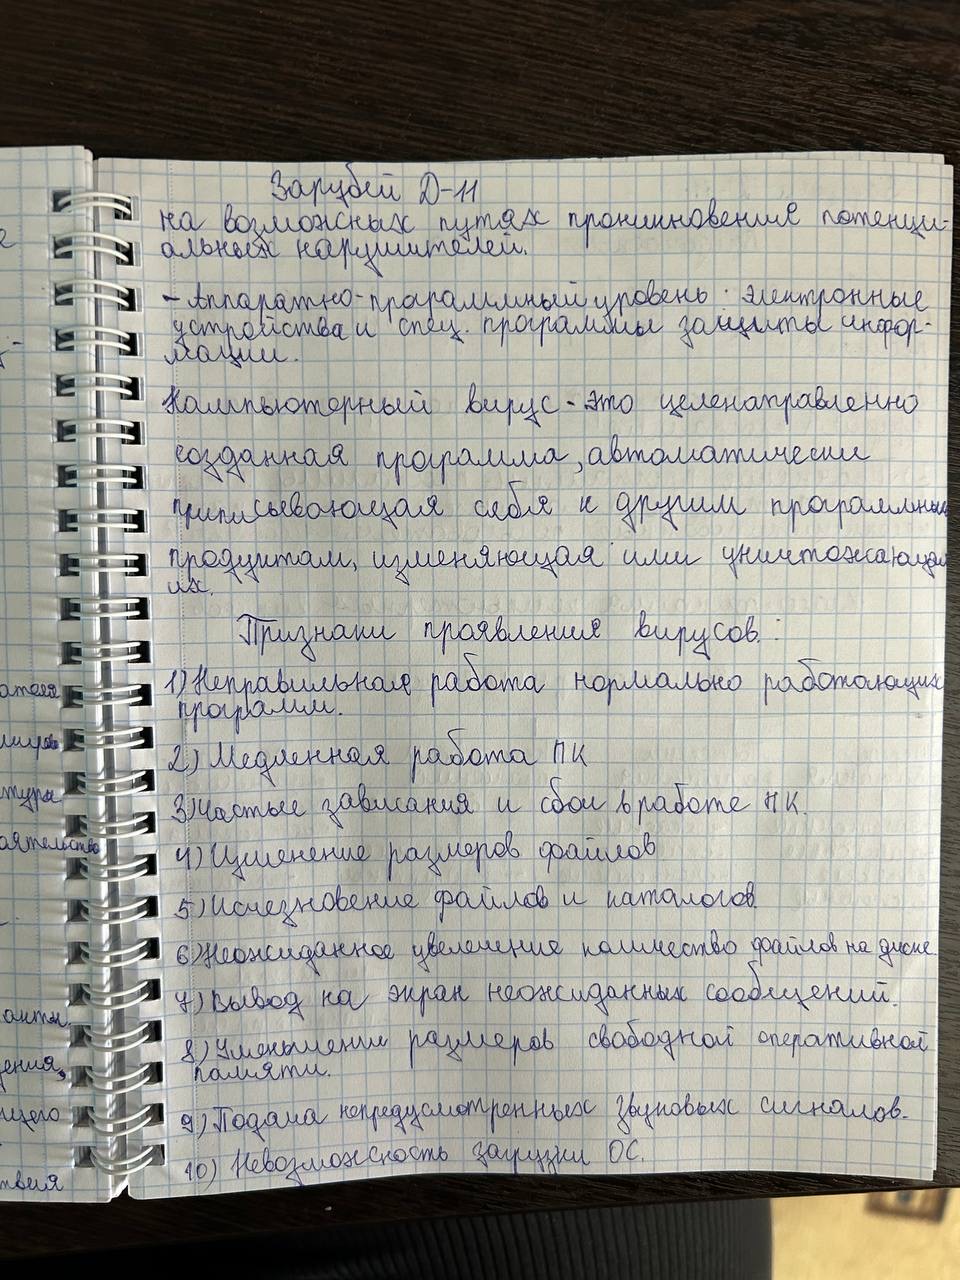 Зарубей Д-11
на возможных путях проникновения потенци-
альных нарушителей.
- Аппаратно-программный уровень: электронные
устройства и спец. программы защиты инфор-
мации.
Компьютерный вирус - это целенаправленно
созданная программа, автоматически
приписывающая себя к другим программным
продуктам, изменяющая или уничтожающая
их.
Признаки проявления вирусов:
1) Неправильная работа нормально работающих
программ.
2) Медленная работа ПК
3) Частые зависания и сбои в работе ПК.
4) Изменение размеров файлов
5) Исчезновение файлов и каталогов.
6) Неожиданное увеличение количество файлов на диске
7) Вывод на экран неожиданных сообщений.
8) Уменьшение размеров свободной оперативной
памяти.
9) Подача непредусмотренных звуковых сигналов.
10) Невозможность загрузки ОС.